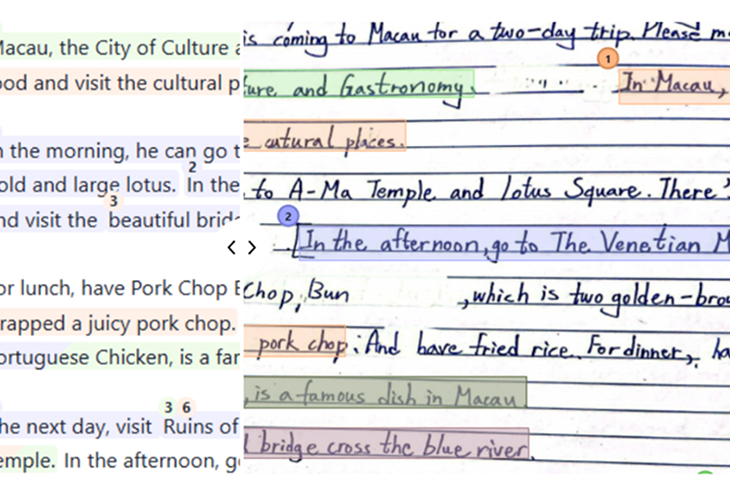 Macau, the City of Culture a
ood and visit the cultural p
n the morning, he can go t
2
old and large lotus. In the
3
nd visit the beautiful brid
or lunch, have Pork Chop B
rapped a juicy pork chop.
ortuguese Chicken, is a far
3 6
he next day, visit Ruins of
emple. In the afternoon, g
is coming to Macau for a two-day trip. Please m
1
ture and Gastronomy. In Macau,
e cutural places.
to A-Ma Temple and lotus Square. There'
2
In the afternoon, go to The Venetian M
Chop, Bun , which is two golden-brow
pork chop. And have fried rice. For dinner, ha
is a famous dish in Macau
l bridge cross the blue river.